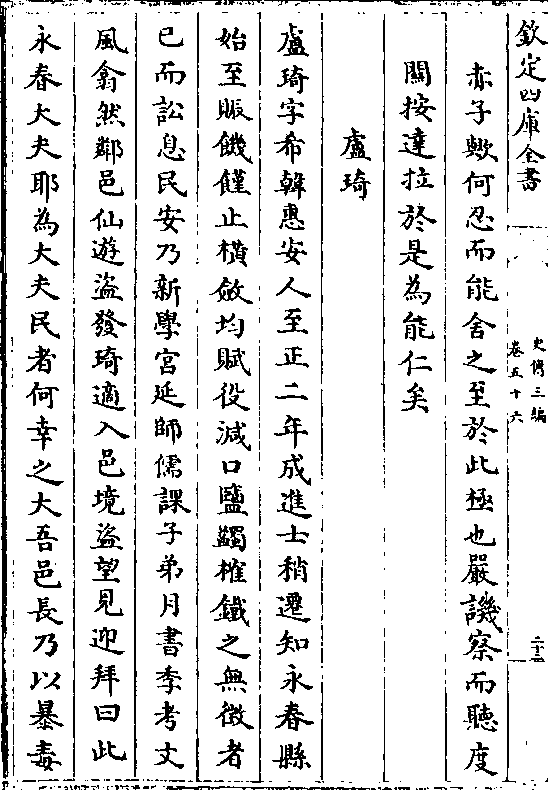 欽定四庫全書
史傳三編
卷五十六
二十三
赤子歟何忍而能舍之至於此極也嚴譏察而聽度
關按達拉於是為能仁矣
盧琦
盧琦字希韓惠安人至正二年成進士稍遷知永春縣
始至賑饑僅止橫斂均賦役減口鹽蠲榷鐵之無徴者
已而訟息民安乃新學宮延師儒課子弟月書季考文
風翕然鄰邑仙遊盜發琦適入邑境盜望見迎拜曰此
永春大夫耶為大夫民者何幸之大吾邑長乃以暴毒